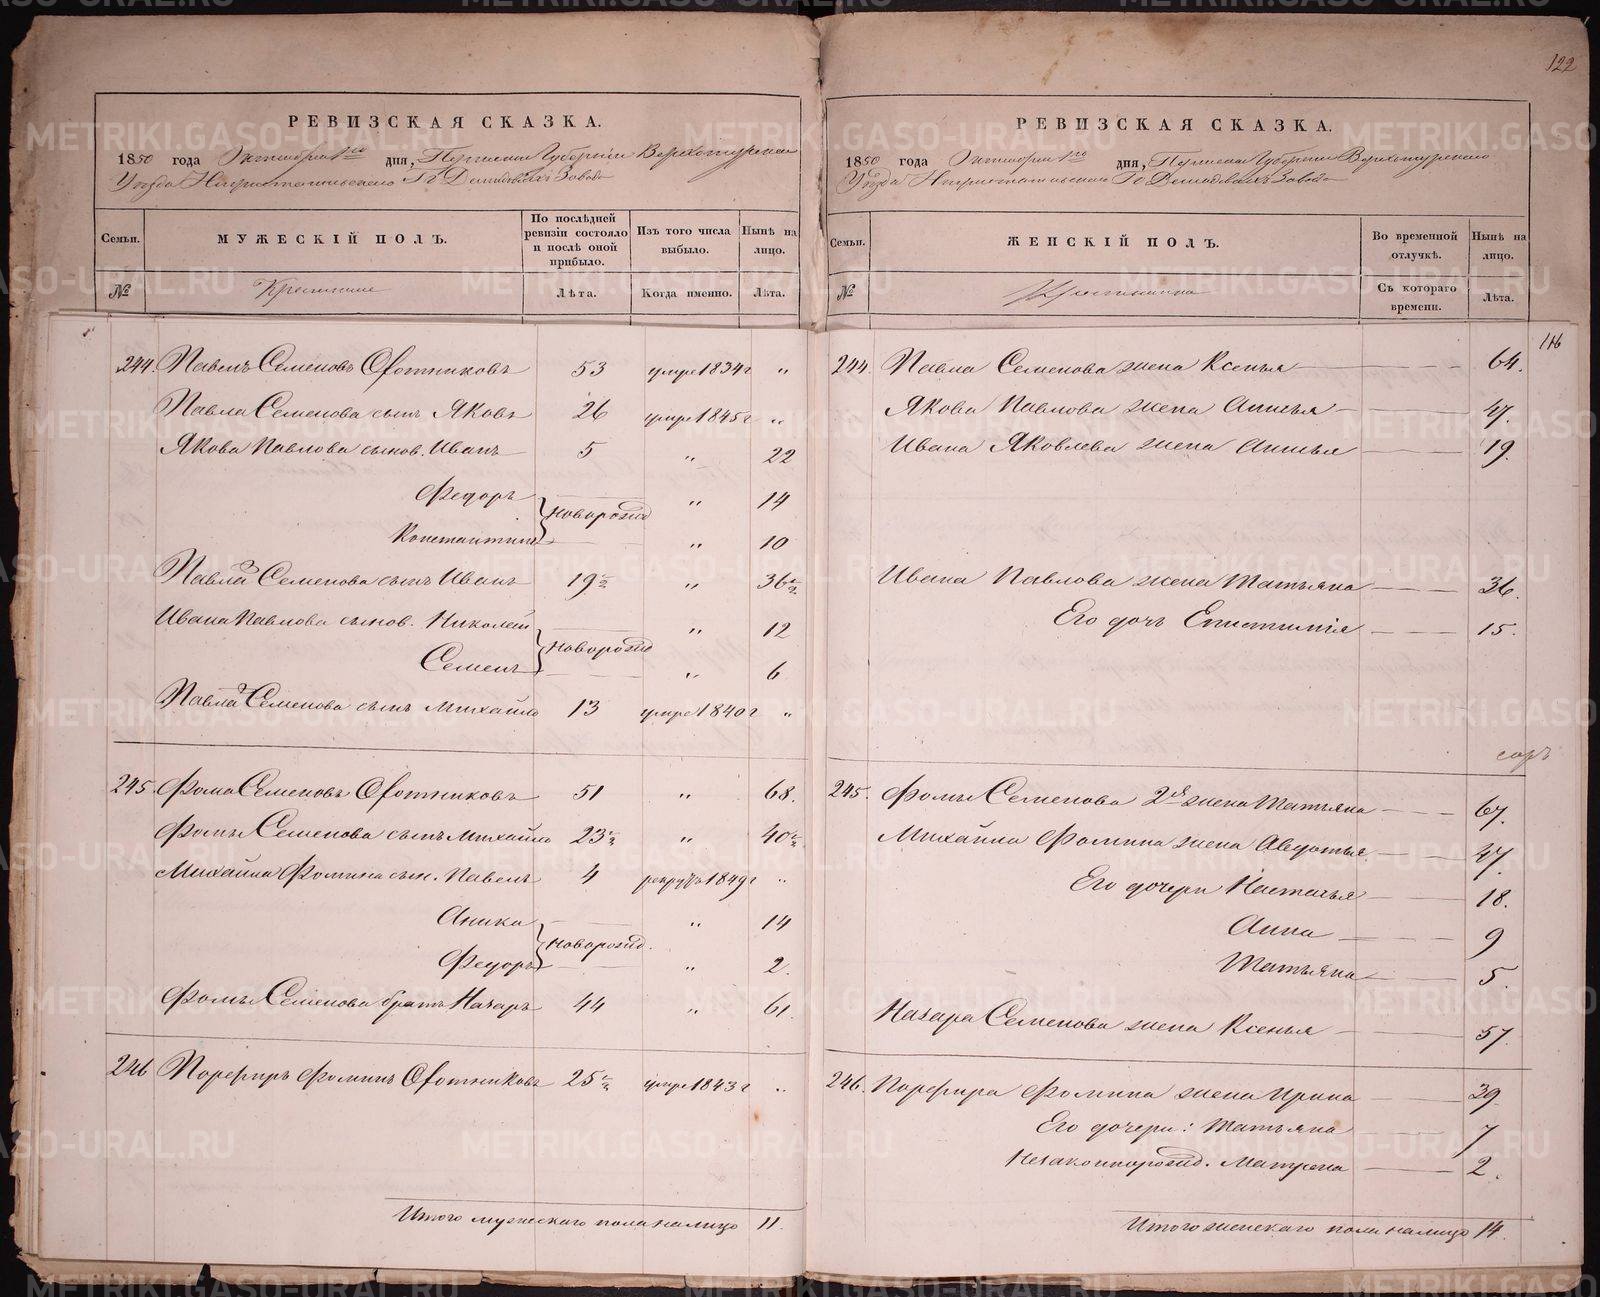 122
РЕВИЗСКАЯ СКАЗКА.
1850 года Октября 1го дня, Пермской Губернiи Верхотурскаго
Уѣзда Нижнетагильскаго Гг Демидовыхъ Завода
Семьи.
МУЖЕСКІЙ ПОЛЪ.
По послѣдней ревизіи состояло и послѣ оной прибыло.
Изъ того числа выбыло.
Нынѣ на лицо.
№ Крестьяне Лѣта. Когда именно. Лѣта.
244. Павелъ Семеновъ Охотниковъ 53 умре 1834 г "
Павла Семенова сынъ Яковъ 26 умре 1845 г "
Якова Павлова сынов. Иванъ 5 " 22
Федоръ " 14
Новорожд
Константинъ " 10
Павла 2 Семенова сынъ Иванъ 19 1/2 " 36 1/2
Ивана Павлова сынов. Николай " 12
Новорожд
Семенъ " 6
Павла 3 Семенова сынъ Михайло 13 умре 1840 г "
245. Фома Семеновъ Охотниковъ 51 " 68.
Фомы Семенова сынъ Михайло 23 1/2 " 40 1/2
Михайла Фомина сын. Павелъ 4 рекрутъ 1849 г "
Аника " 14
Новорожд.
Федоръ " 2.
Фомы Семенова братъ Назаръ 44 " 61.
246 Порфиръ Фоминъ Охотниковъ 25 1/2 умре 1843 г "
Итого мужескаго пола налицо 11.
РЕВИЗСКАЯ СКАЗКА.
1850 года Октября 1го дня, Пермской Губернiи Верхотурскаго
Уѣзда Нижнетагильскаго Гг Демидовыхъ Завода
Семьи.
ЖЕНСКІЙ ПОЛЪ.
Во временной отлучкѣ.
Нынѣ на лицо.
№ Крестьянки Съ котораго времени. Лѣта.
116
244. Павла Семенова жена Ксенья 64.
Якова Павлова жена Анисья 47.
Ивана Яковлева жена Анисья 19.
Ивана Павлова жена Татьяна 36.
Его дочь Епистимiя 15.
245. Фомы Семенова 2я жена Татьяна 67.
Михайла Фомина жена Авдотья 47.
Его дочери Настасья 18.
Анна 9
Татьяна 5.
Назара Семенова жена Ксенья 57.
246. Порфира Фомина жена Ирина 39.
Его дочери: Татьяна 7
Незаконнорожд. Матрена 2.
Итого женскаго пола налицо 14.
METRIKI.GASO-URAL.RU